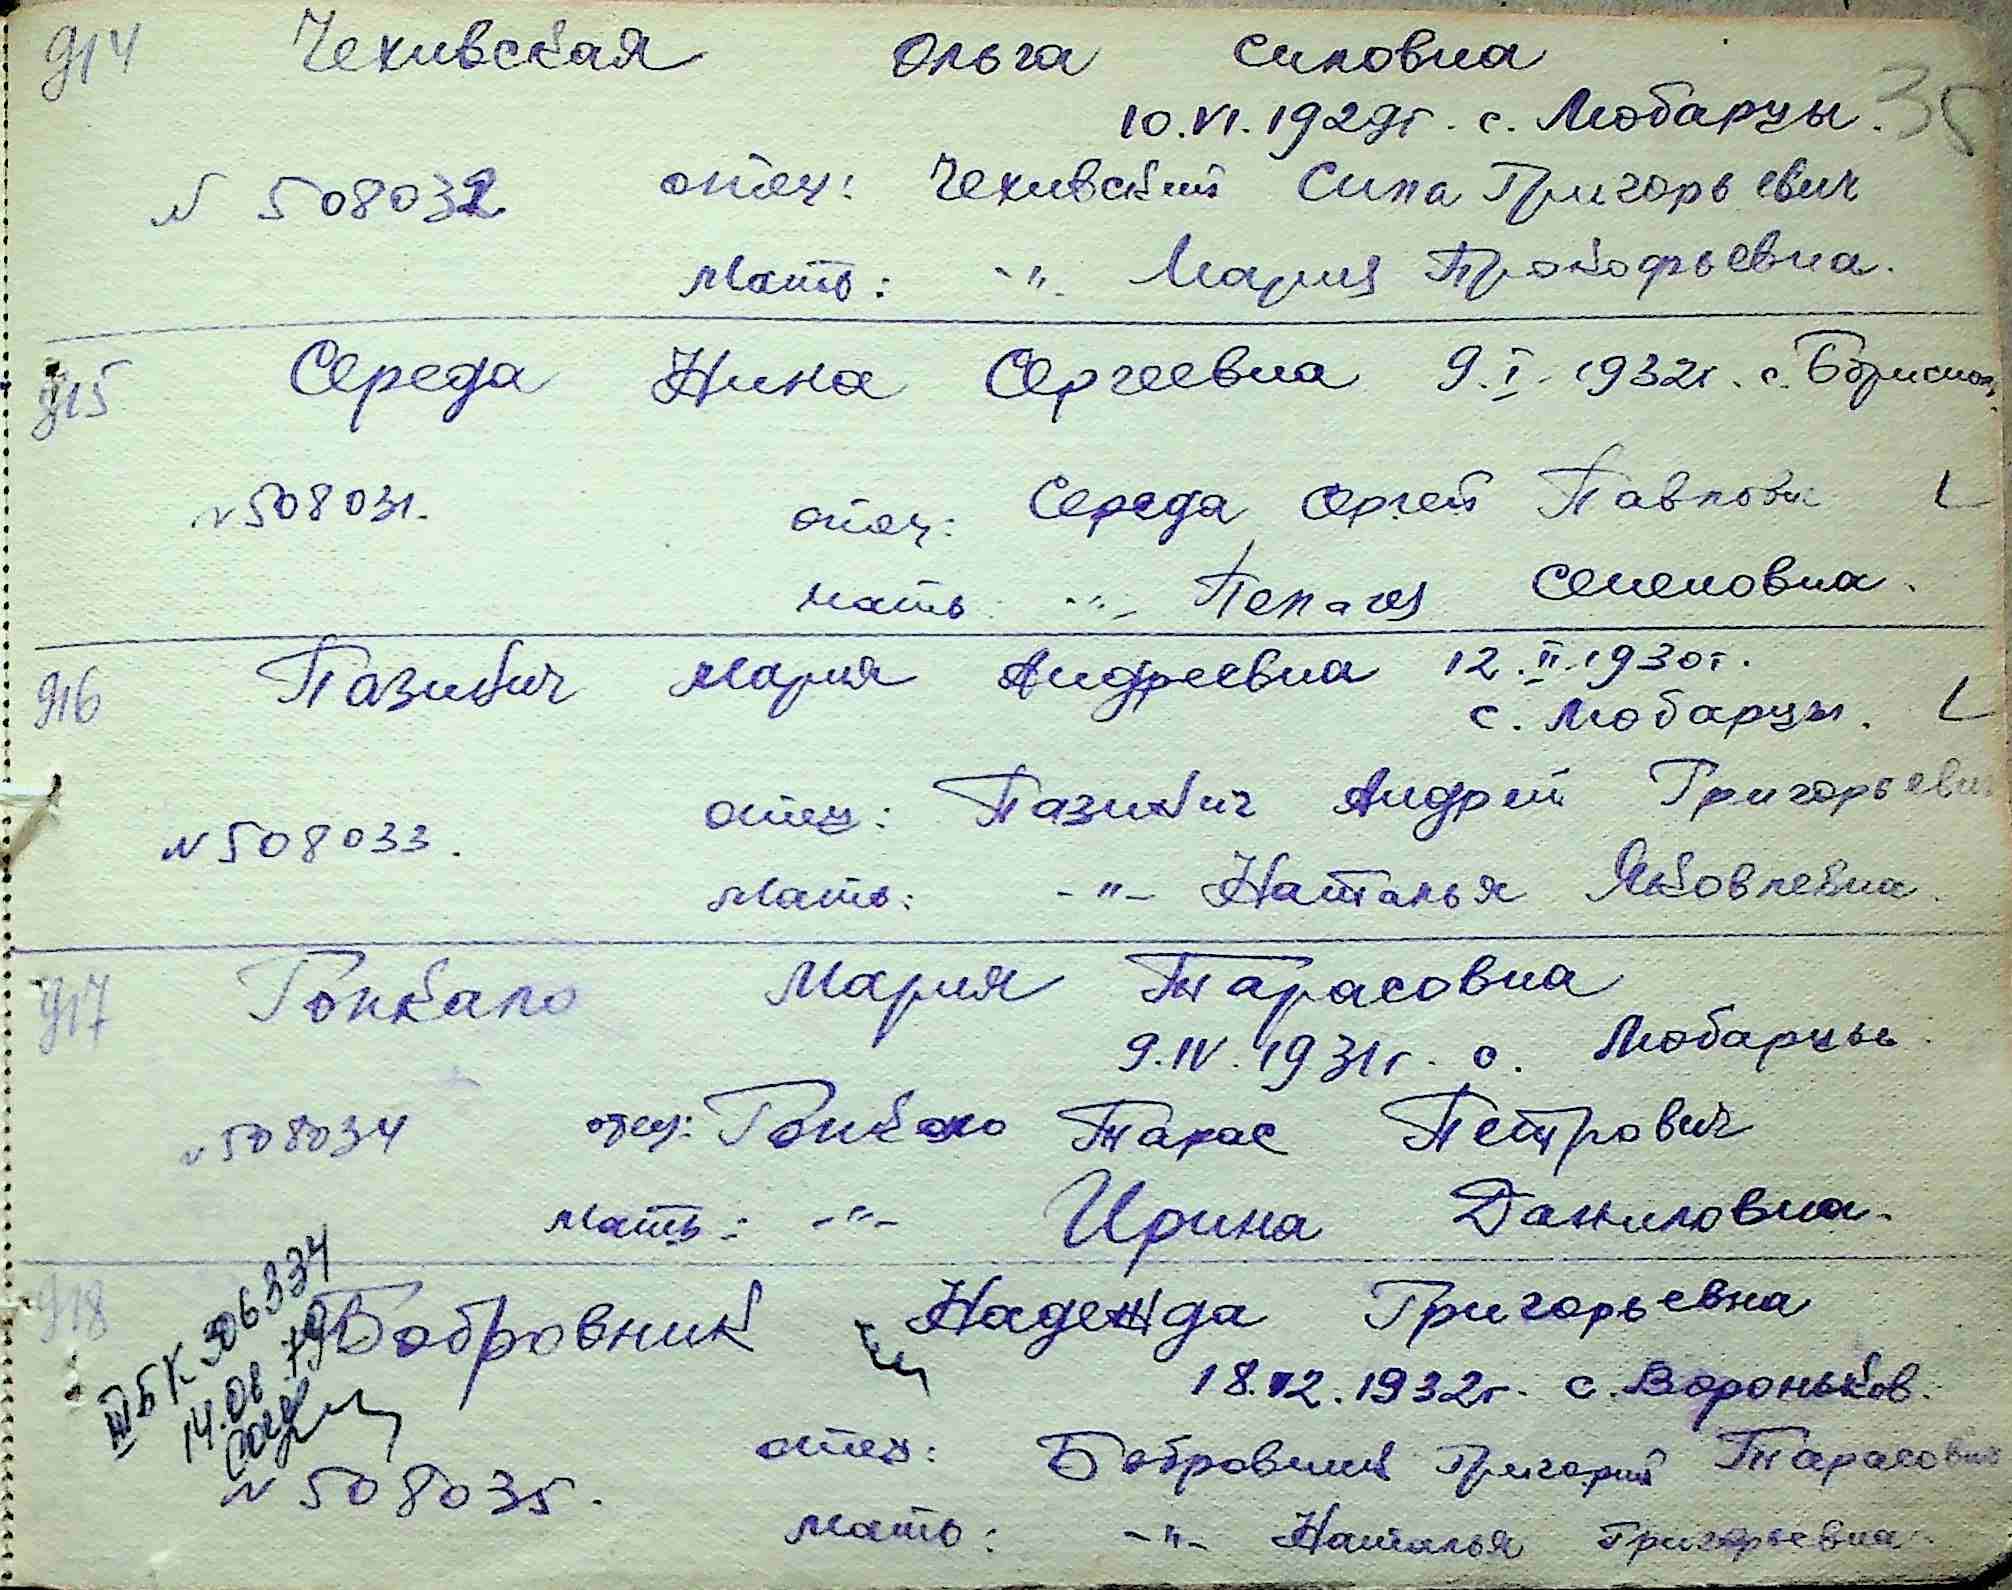 914 Чехивская Ольга Силовна
10.VI.1929г. с. Любарцы. 35
N 508032 отец: Чехивский Сила Григорьевич
мать: -"- Мария Прокофьевна.
915 Середа Нина Сергеевна 9.I.1932г. с.
N 508031. отец: Середа Сергей Павлович
мать -"- Пелагея Семеновна.
916 Пазибич Мария Андреевна 12.II.1930г.
с. Любарцы.
отец: Пазибич Андрей Григорьевич
N 508033.
мать: -"- Наталья Яковлевна.
917 Гопкало Мария Тарасовна
9.IV.1931г. с. Любарцы.
N 508034 отец: Гопкало Тарас Петрович
мать: -"- Ирина Даниловна.
918 Бобровник Надежда Григорьевна
III БК 306334
14.08 79
18.12.1932г. с. Вороньков.
отец: Бобровник Григорий Тарасович
N 508035.
мать: -"- Наталья Григорьевна.